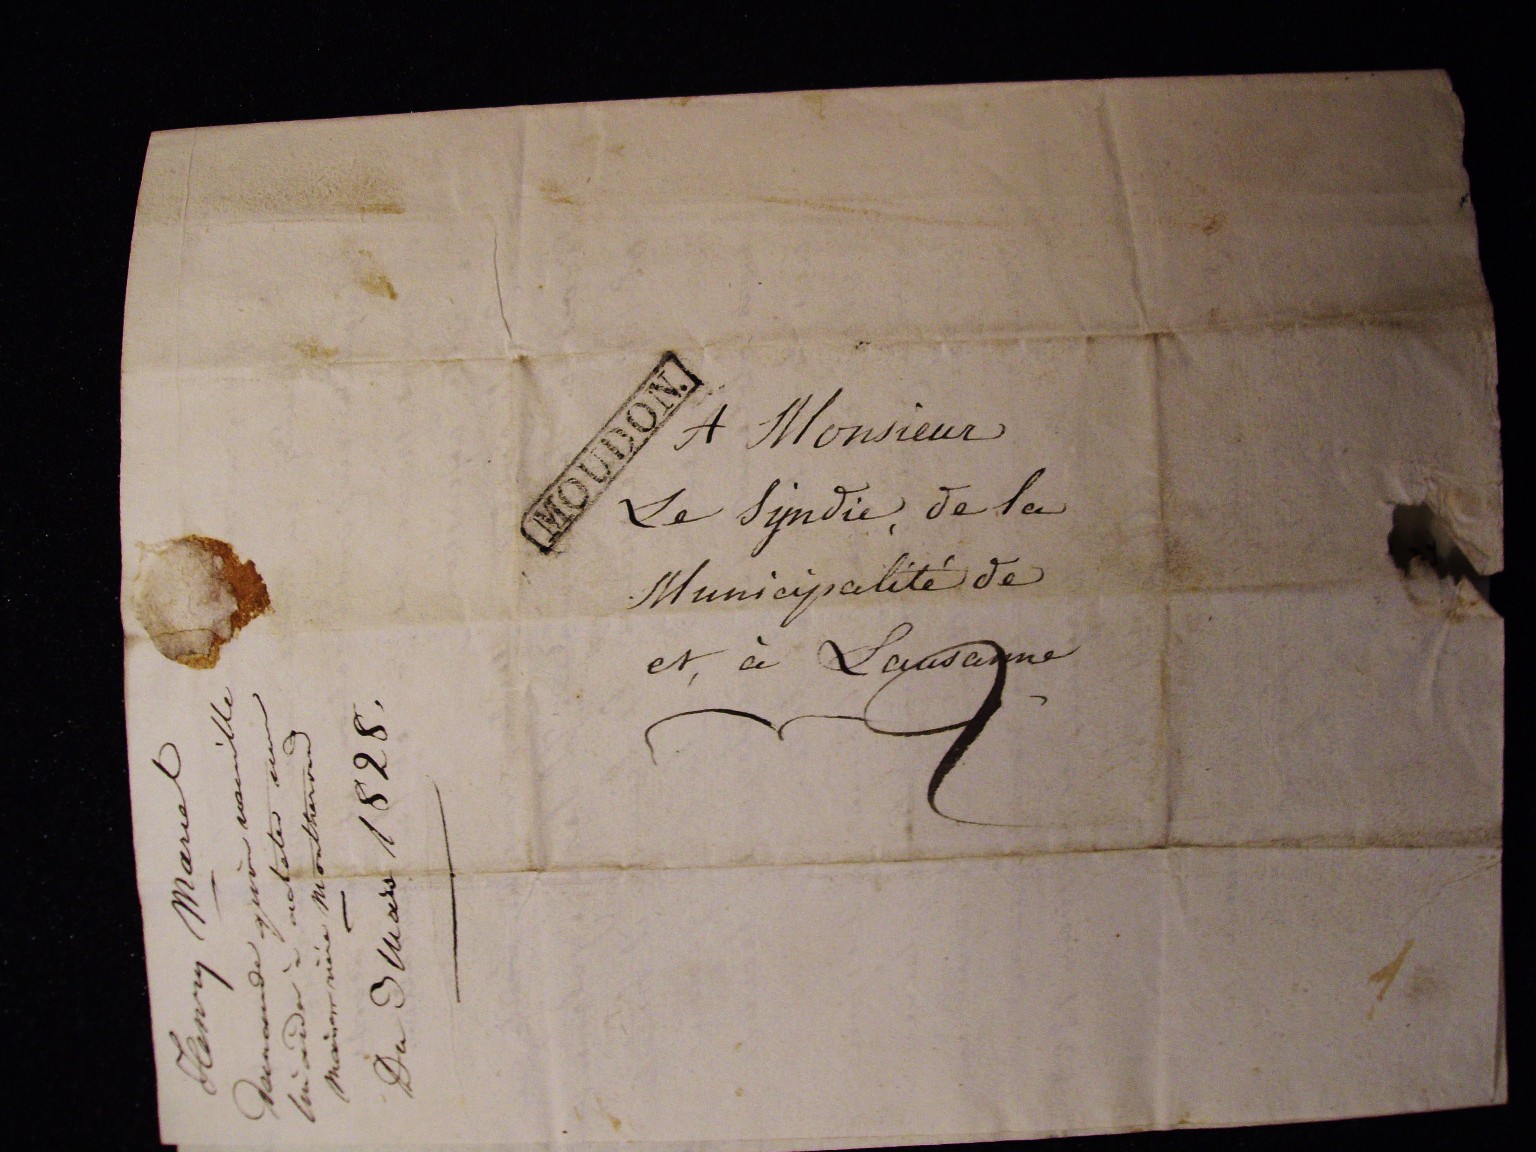 MOUDON.
A Monsieur
Le Syndic, de la
Municipalité de
et, à Lausanne
Henry Marel
Demande qu'on veuille
lui aider à
maison
Du 3 Mars 1828.